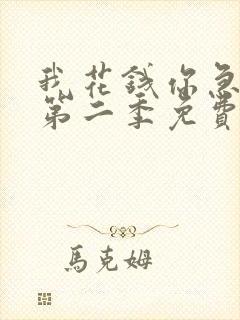 我花錢你急
第二季免費
馬克姆